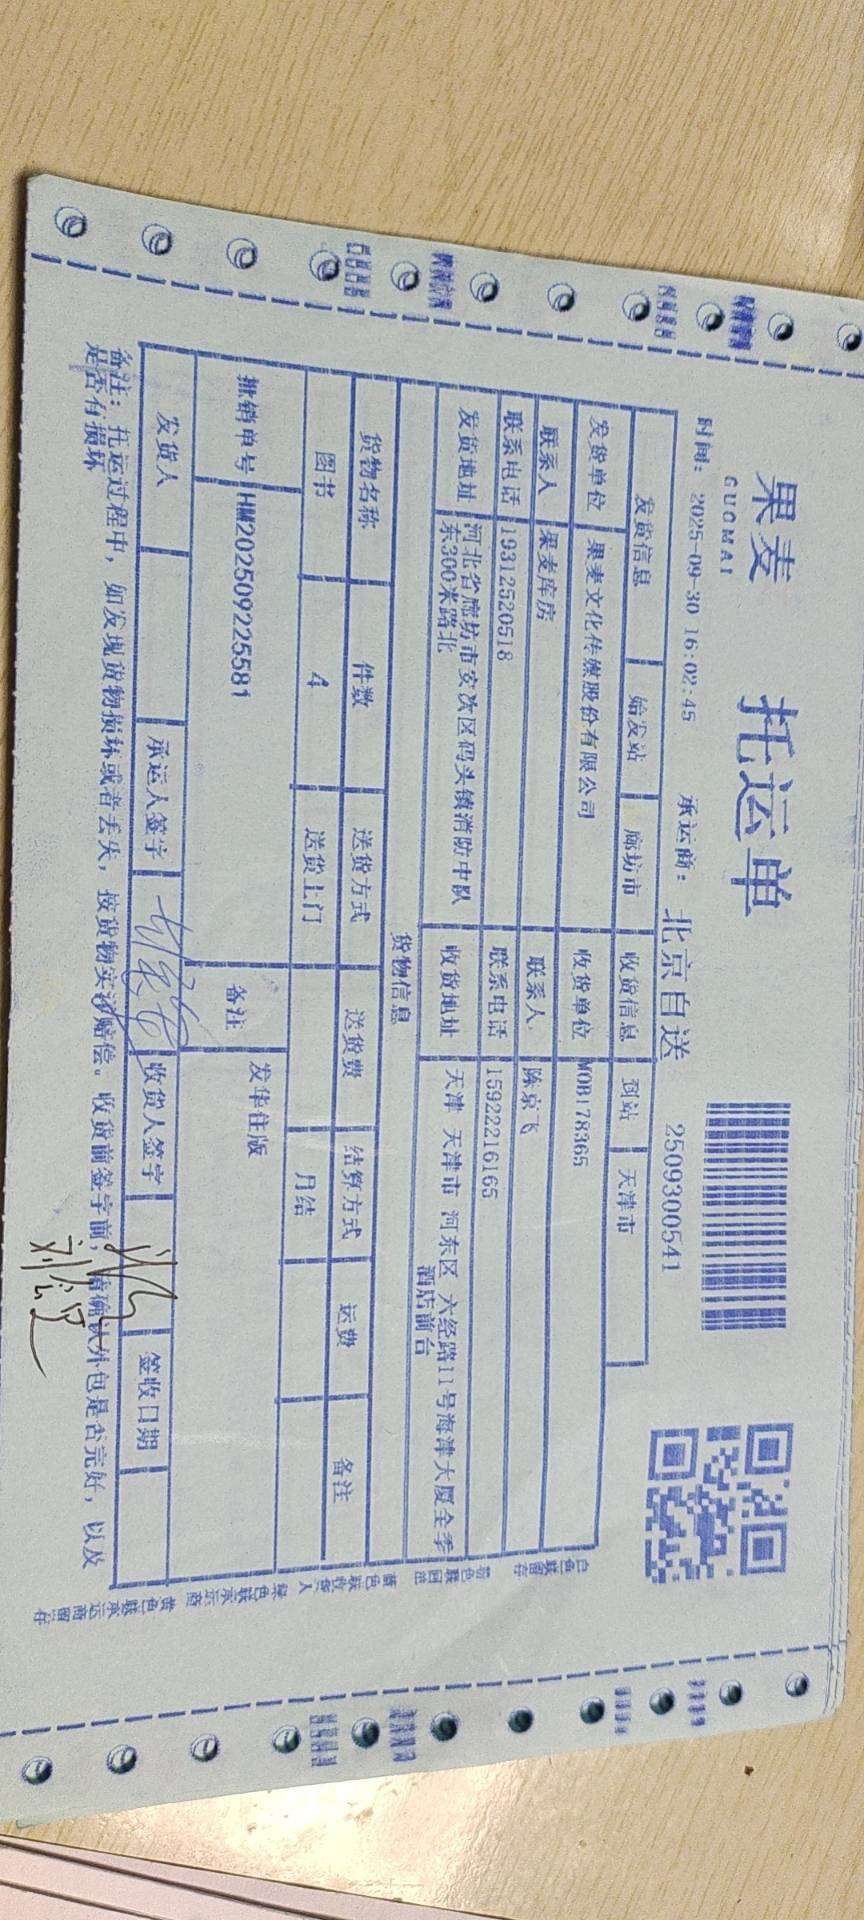 果麦
GUOMAI
托运单
时间：2025-09-30 16:02:45 承运商：北京自送 2509300541
发货信息 始发站 廊坊市 收货信息 到站 天津市
发货单位 果麦文化传媒股份有限公司 收货单位 MOB178365
联系人 果麦库房 联系人 陈京飞
联系电话 19312520518 联系电话 15922216165
发货地址 河北省廊坊市安次区码头镇消防中队东300米路北 收货地址 天津 天津市 河东区 六经路11号海津大厦全季酒店前台
货物信息
货物名称 件数 送货方式 送货费 结算方式 运费 备注
图书 4 送货上门 月结
批销单号 HM202509225581 备注 发华住版
发货人 承运人签字 收货人签字 签收日期
备注：托运过程中，如发现货物损坏或者丢失，按货物实洋赔偿。收货前签字前，请确认外包是否完好，以及
是否有损坏
白色联留存 粉色联回单 蓝色联收货人 绿色联承运商 黄色联承运商留存